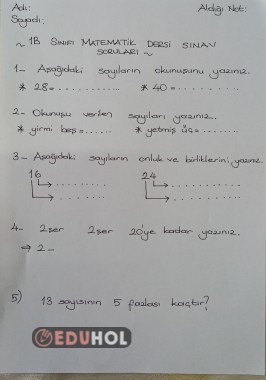 Adı:
Aldığı Not:
Soyadı:
~ 1B SINIFI MATEMATİK DERSİ SINAV
SORULARI ~
1- Aşağıdaki sayıların okunuşunu yazınız.
* 28= ........... * 40= ...........
2- Okunuşu verilen sayıları yazınız..
* yirmi beş=...... * yetmiş üç= .......
3- Aşağıdaki sayıların onluk ve birliklerini yazınız
16 24
4- 2şer 2şer 20'ye kadar yazınız.
⇒ 2-
5) 13 sayısının 5 fazlası kaçtır?
EDUHOL